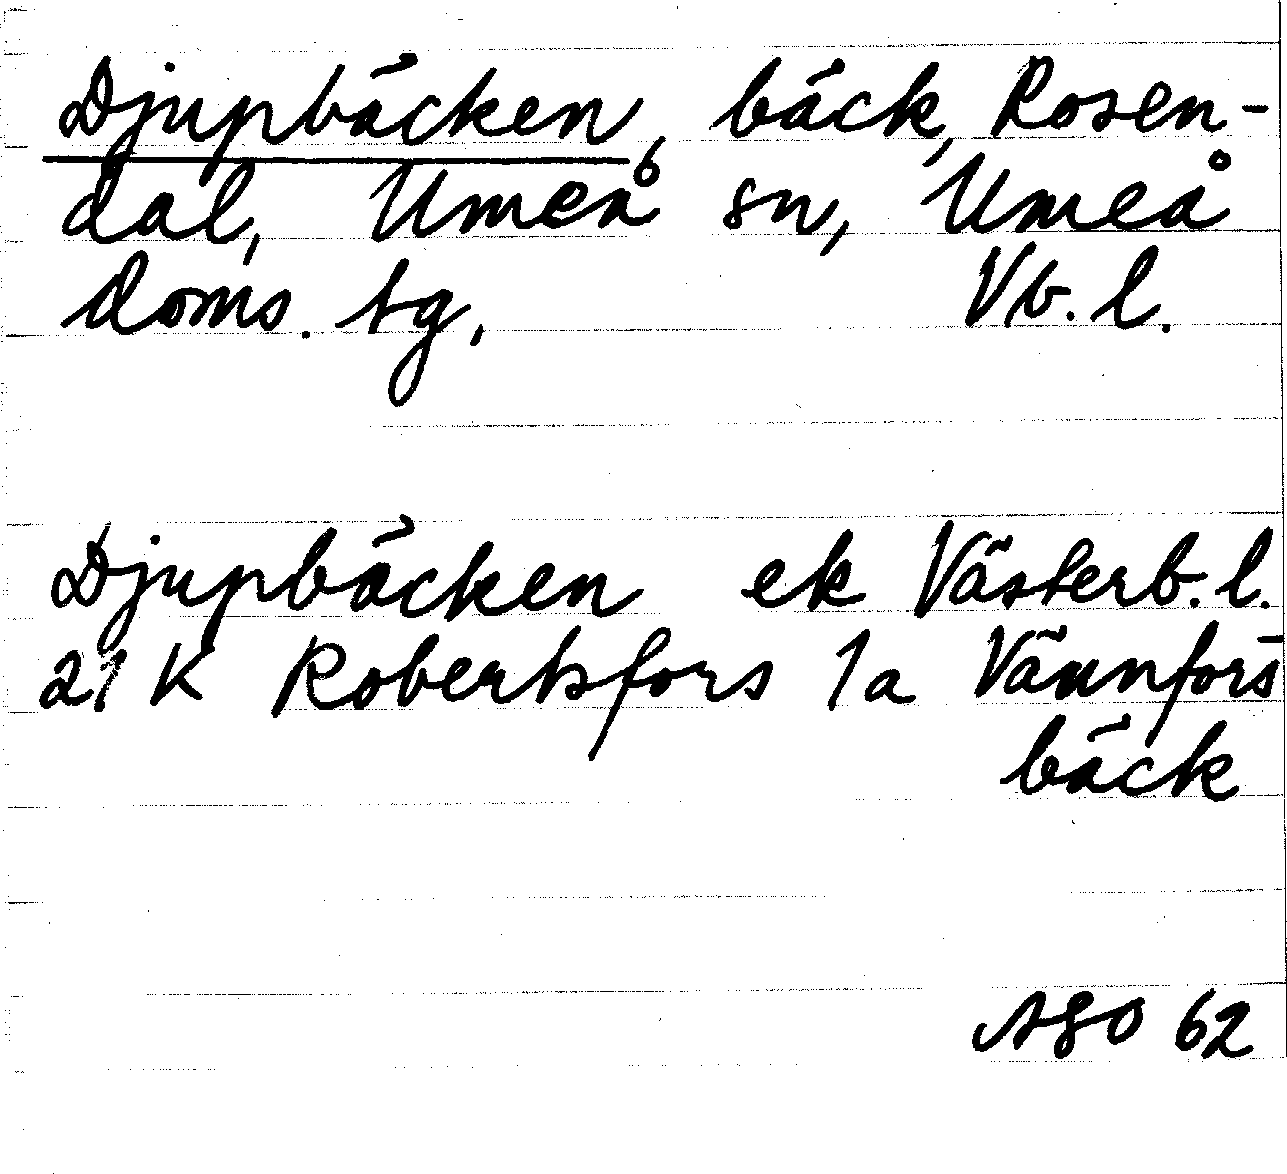 Djupbäcken, bäck, Rosen-
dal, Umeå sn, Umeå
doms. tg, Vb. l.
Djupbäcken ek Västerb. l.
21 K Robertsfors 1a Vännfors-
bäck
ASO 62